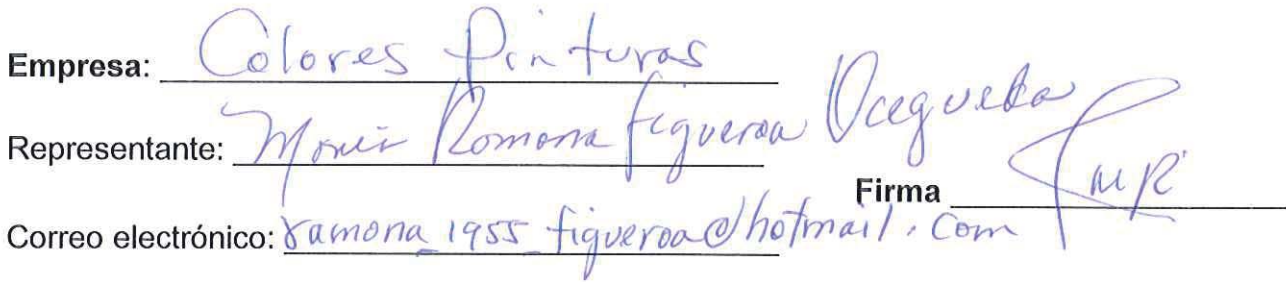 Empresa: Colores Pinturas
Representante: Maria Ramona Figueroa Ocegueda
Firma
Correo electrónico: ramona_1955_figueroa@hotmail.com